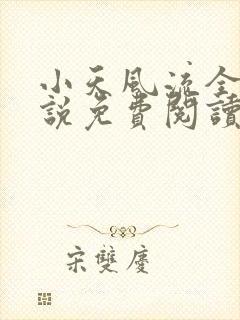 小天風流全
說免費閱讀
宋雙慶